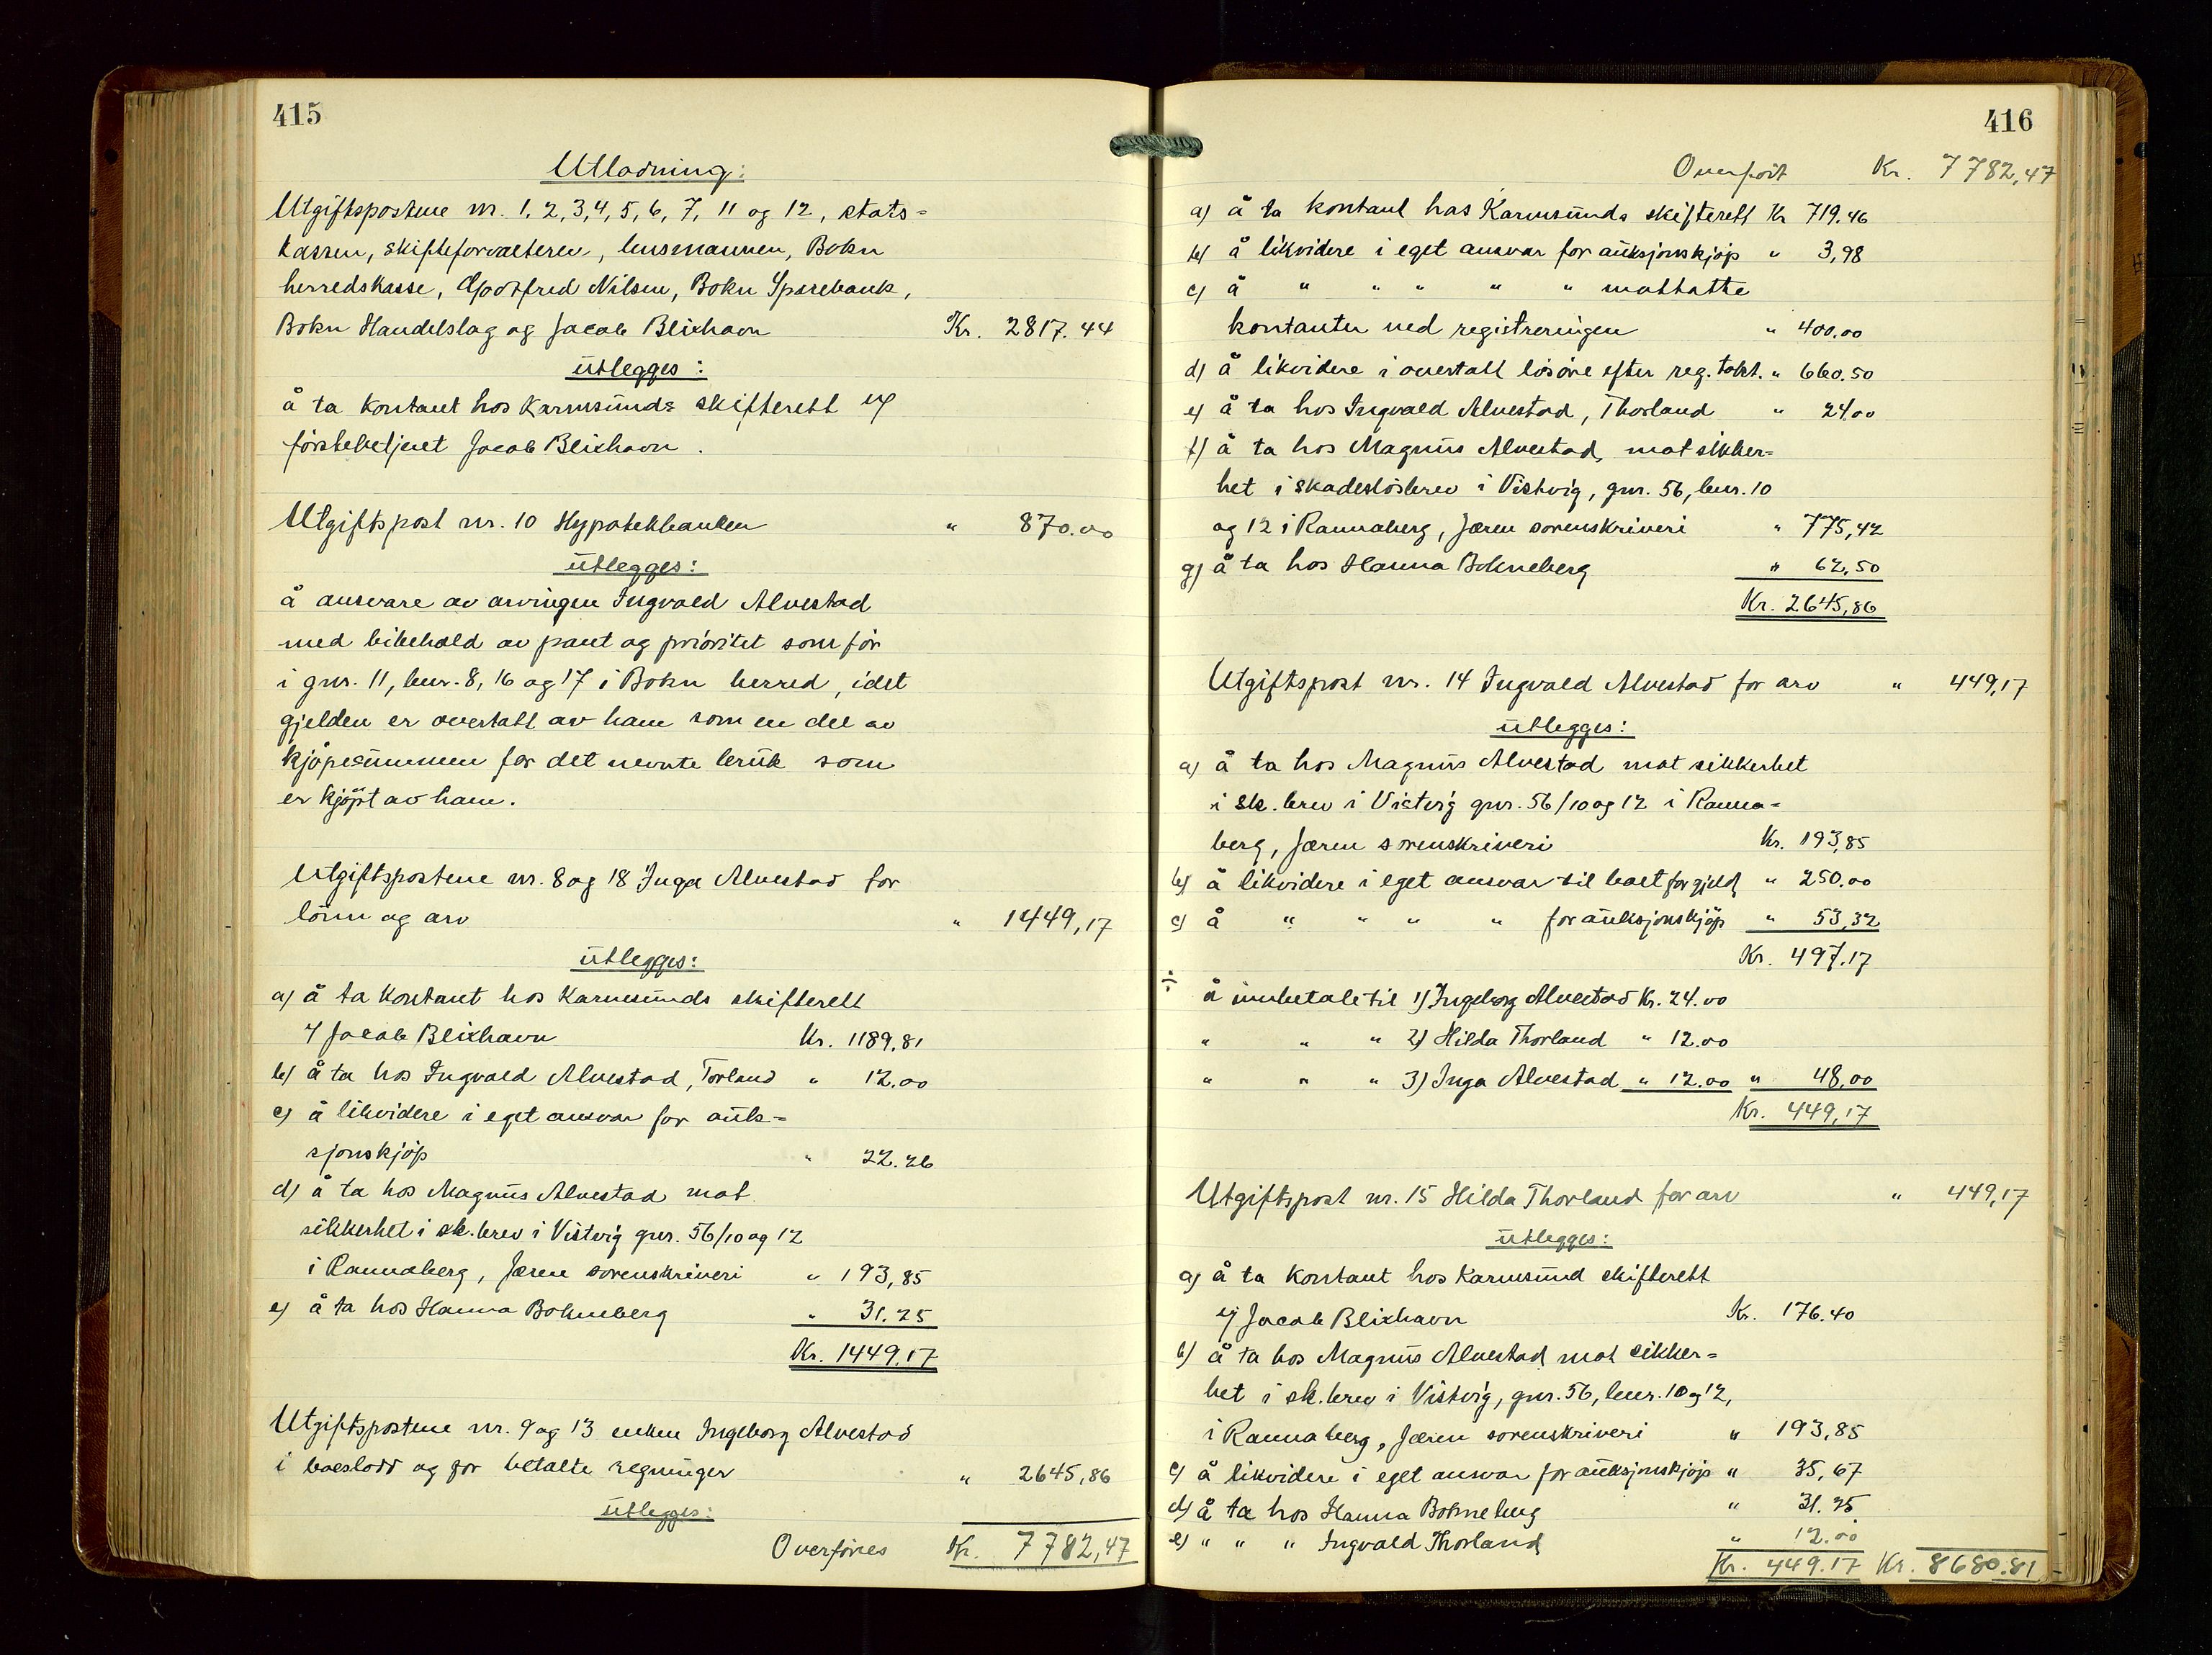 415
Utlodning:
Utgiftspostene nr. 1, 2, 3, 4, 5, 6, 7, 11 og 12, stats-
kassen, skifteforvalteren, lensmannen, Bokn
herredskasse, Gotfred Nilsen, Bokn Sparebank,
Bokn Handelslag og Jacob Blixhavn Kr. 2817.44
ütlegges:
å ta kontant hos Karmsunds skifterett v/
förstebetjent Jacob Blixhavn.
Utgiftspost nr. 10 Hypotekbanken " 870.00
ütlegges:
å ansvare av arvingen Ingvald Alvestad
med bibehold av pant og prioritet som för
i gnr. 11, bnr. 8, 16 og 17 i Bokn herred, idet
gjelden er overtatt av ham som en del av
kjöpesümmen for det nevnte brük som
er kjöpt av ham.
Utgiftspostene nr. 8 og 18 Inga Alvestad for
lönn og arv " 1449,17
ütlegges:
a) å ta kontant hos Karmsünds skifterett
v/ Jacob Blixhavn Kr. 1189,81
b) å ta hos Ingvald Alvestad, Torland " 12.00
c) å likvidere i eget ansvar for aük-
sjonskjöp " 22.26
d) å ta hos Magnüs Alvestad mot
sikkerhet i sk.brev i Vistvig gnr. 56/10 og 12
i Rannaberg, Jæren sorenskriveri " 193,85
e) å ta hos Hanna Bokneberg " 31.25
Kr. 1449,17
Utgiftspostene nr. 9 og 13 enken Ingeborg Alvestad
i boeslodd og for betalte regninger " 2645,86
ütlegges:
Overföres Kr. 7782,47
416
Overfört Kr. 7782,47
a) å ta kontant hos Karmsünds skifterett Kr 719.46
b) å likvidere i eget ansvar for aüksjonskjöp " 3,98
c) å " " " " " mottatte
kontanter ved registreringen " 400.00
d) å likvidere i overtatt lösöre efter reg. takst. " 660.50
e) å ta hos Ingvald Alvestad, Thorland " 24.00
f) å ta hos Magnüs Alvestad, mot sikker-
het i skadeslösbrev i Vistvig, gnr. 56, bnr. 10
og 12 i Rannaberg, Jæren sorenskriveri " 775,42
g) å ta hos Hanna Bokneberg " 62,50
Kr. 2645,86
Utgiftspost nr. 14 Ingvald Alvestad for arv " 449,17
ütlegges:
a) å ta hos Magnüs Alvestad mot sikkerhet
i sk.brev i Vistvig gnr. 56/10 og 12 i Ranna-
berg, Jæren sorenskriveri Kr. 193,85
b) å likvidere i eget ansvar til boet for gjeld " 250.00
c) å " " " " for aüksjonskjöp " 53,32
Kr. 497.17
÷ å innbetale til 1) Ingeborg Alvestad Kr. 24.00
" " " 2) Hilda Thorland " 12.00
" " " 3) Inga Alvestad " 12.00 " 48,00
Kr. 449,17
Utgiftspost nr. 15 Hilda Thorland for arv " 449,17
ütlegges:
a) å ta kontant hos Karmsünd skifterett
v/ Jacob Blixhavn Kr. 176.40
b) å ta hos Magnüs Alvestad mot sikker-
het i sk.brev i Vistvig, gnr. 56, bnr. 10 og 12,
i Rannaberg, Jæren sorenskriveri " 193,85
c) å likvidere i eget ansvar for aüksjonskjöp " 35,67
d) å ta hos Hanna Bokneberg " 31.25
e) " " " Ingvald Thorland " 12.00
Kr. 449.17 Kr. 8680.81